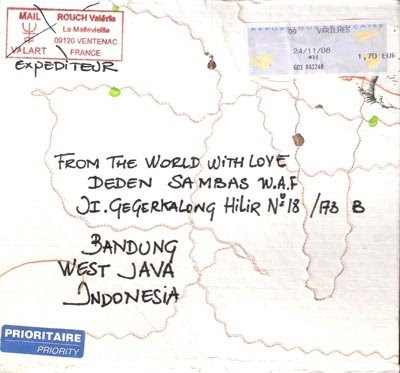 MAIL
VALART
ROUCH Valérie
La Mallevieille
09120 VENTENAC
FRANCE
EXPEDITEUR
RÉPUBLIQUE FRANÇAISE
00 VARILHES
24/11/08
*H 1,70 EUR
603 093240
FROM THE WORLD WITH LOVE
DEDEN SAMBAS W.A.F
JI. GEGERKALONG HILIR Nº 18 /173 B
BANDUNG
WEST JAVA
INDONESIA
PRIORITAIRE
PRIORITY